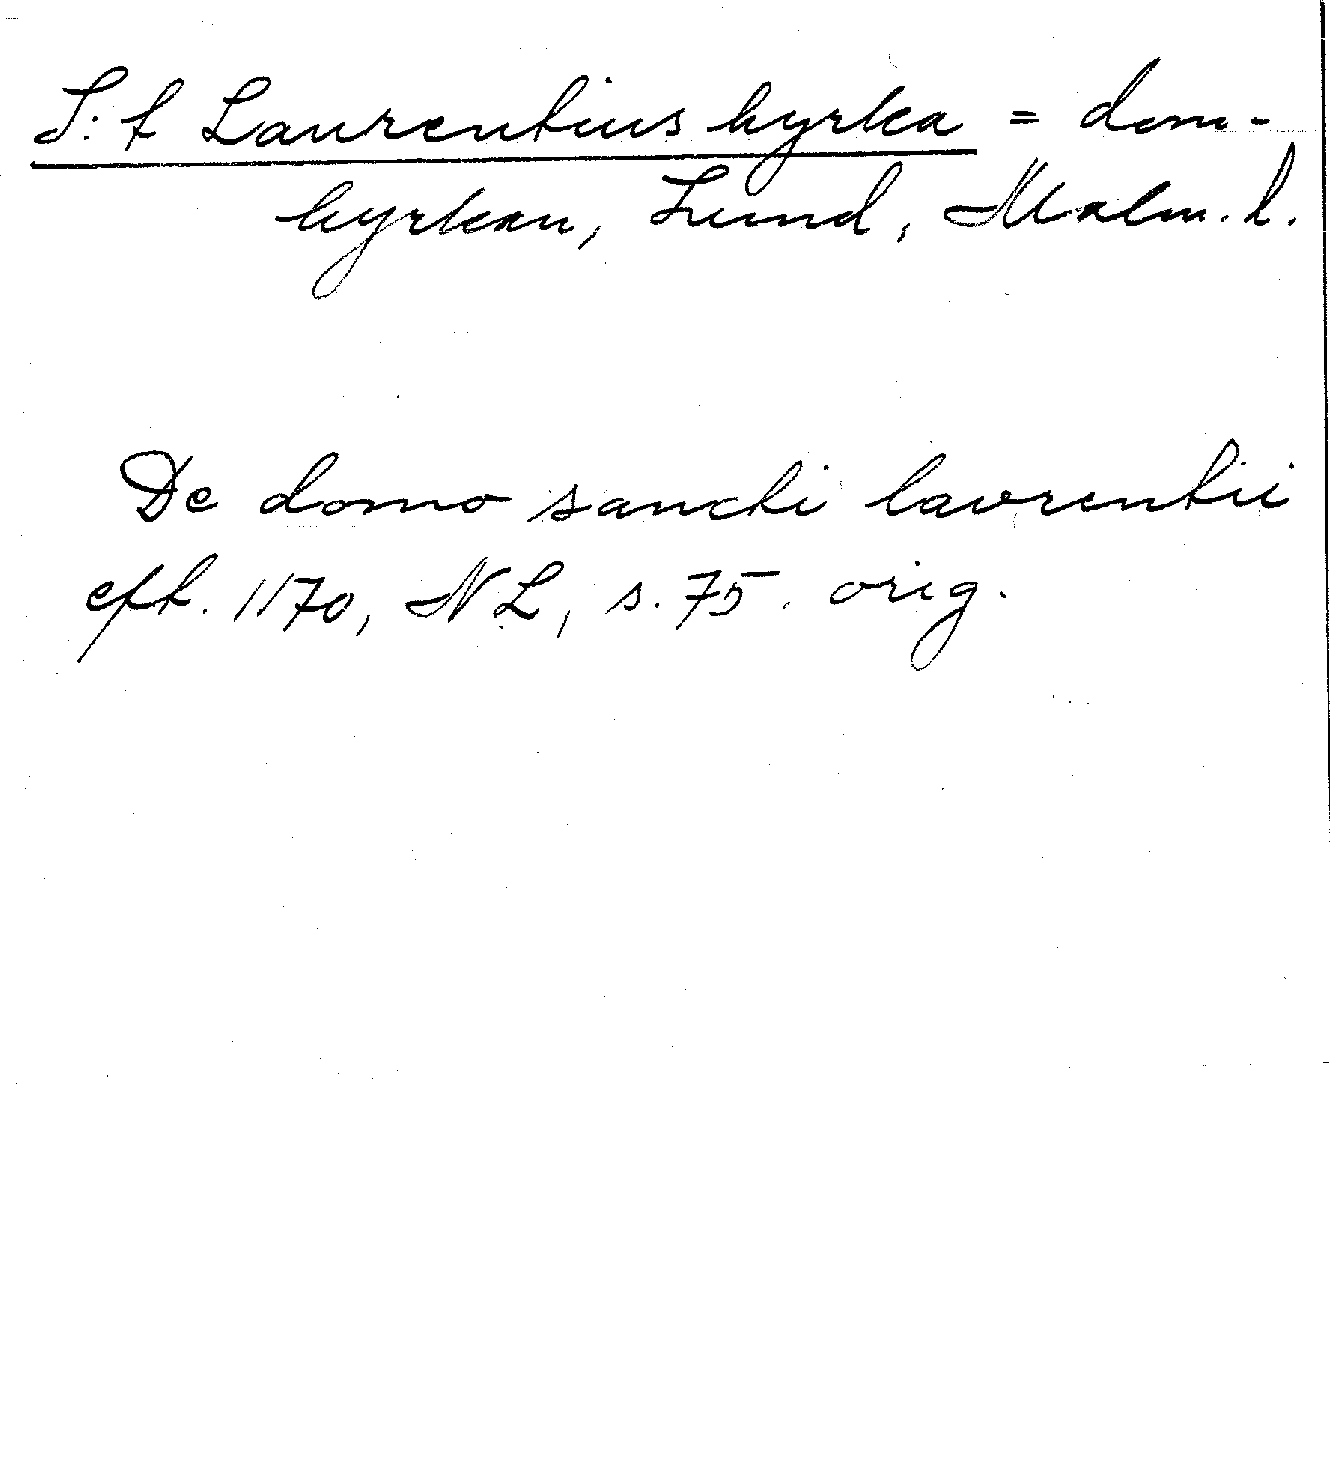 S:t Laurentius kyrka = dom-
kyrkan, Lund, Malm. l.
De domo sancti lavrentii
eft. 1170, NL, s. 75. orig.